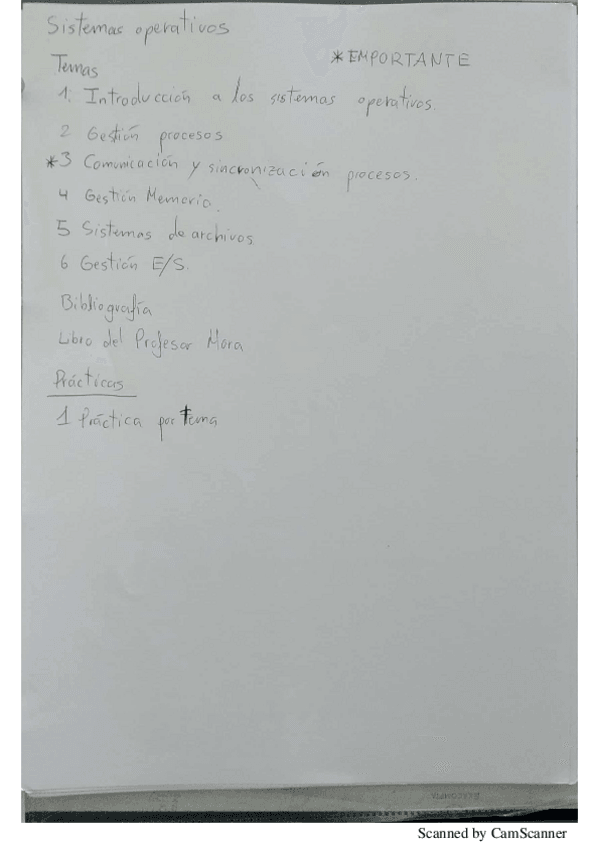 Sistemas operativos
Temas
*IMPORTANTE
1. Introducción a los sistemas operativos.
2 Gestión procesos
*3 Comunicación y sincronización procesos.
4 Gestión Memoria.
5 Sistemas de archivos
6 Gestión E/S.
Bibliografía
Libro del Profesor Mora
Prácticas
1 Práctica por tema
Scanned by CamScanner